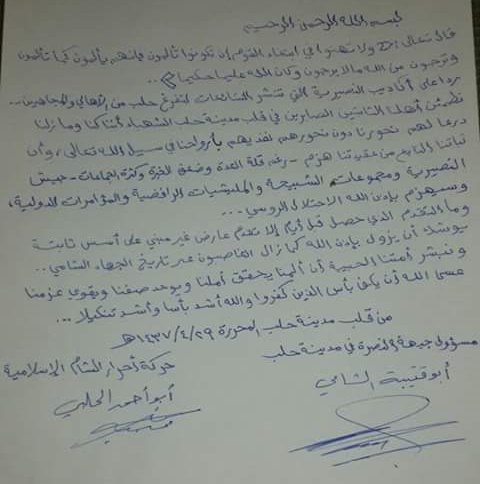 بسم الله الرحمن الرحيم
قال تعالى: ولا تهنوا في ابتغاء القوم إن تكونوا تألمون فإنهم يألمون كما تألمون
وترجون من الله ما لا يرجون وكان الله عليما حكيما ...
رداً على أكاذيب النصيرية التي تنشر الشائعات لتفرغ حلب من الأهالي والمجاهدين ..
نطمئن أهلنا الثابتين الصابرين في قلب مدينة حلب الشهباء أننا كنا وما زلنا
درعاً لهم نحورنا دون نحورهم نفديهم بأرواحنا في سبيل الله تعالى، وأن
ثباتنا النابع من عقيدتنا هزم - رغم قلة العدة وضعف الخبرة وكثرة - جيش
النصيرية ومجموعات الشبيحة والمليشيات الرافضية والمؤامرات الدولية،
وسيهزم بإذن الله الاحتلال الروسي ...
وما التقدم الذي حصل قبل أيام إلا تقدم عارض غير مبني على أسس ثابتة
يوشك أن يزول بإذن الله كما زال الغاصبون عبر تاريخ الجهاد الشامي ..
ونبشر أمتنا الحبيبة أن ألمنا يحقق أملنا ويوحد صفنا ويقوي عزمنا
عسى الله أن يكف بأس الذين كفروا والله أشد بأسا وأشد تنكيلا ...
من قلب مدينة حلب المحررة ١٤٣٧/٤/٢٩هـ
مسؤول جبهة النصرة في مدينة حلب
أبو قتيبة الشامي
حركة أحرار الشام الإسلامية
أبو أحمد الحلبي